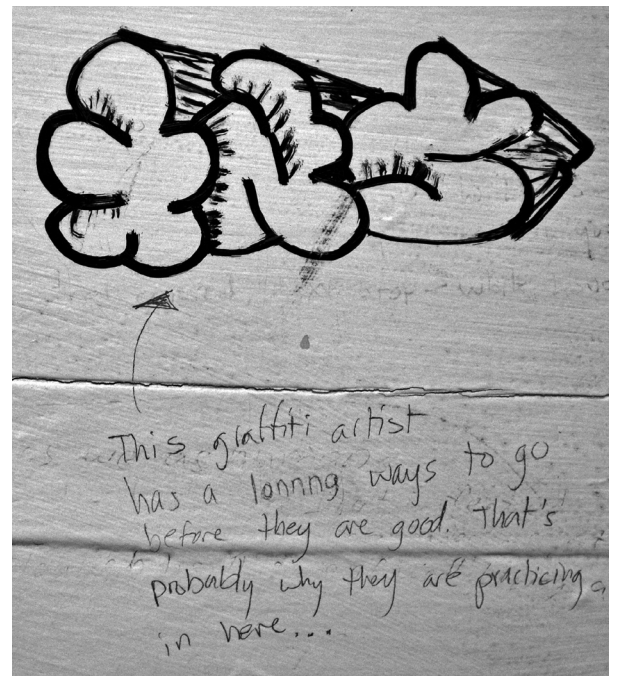 This graffiti artist
has a lonnng ways to go
before they are good. That's
probably why they are practicing
in here...